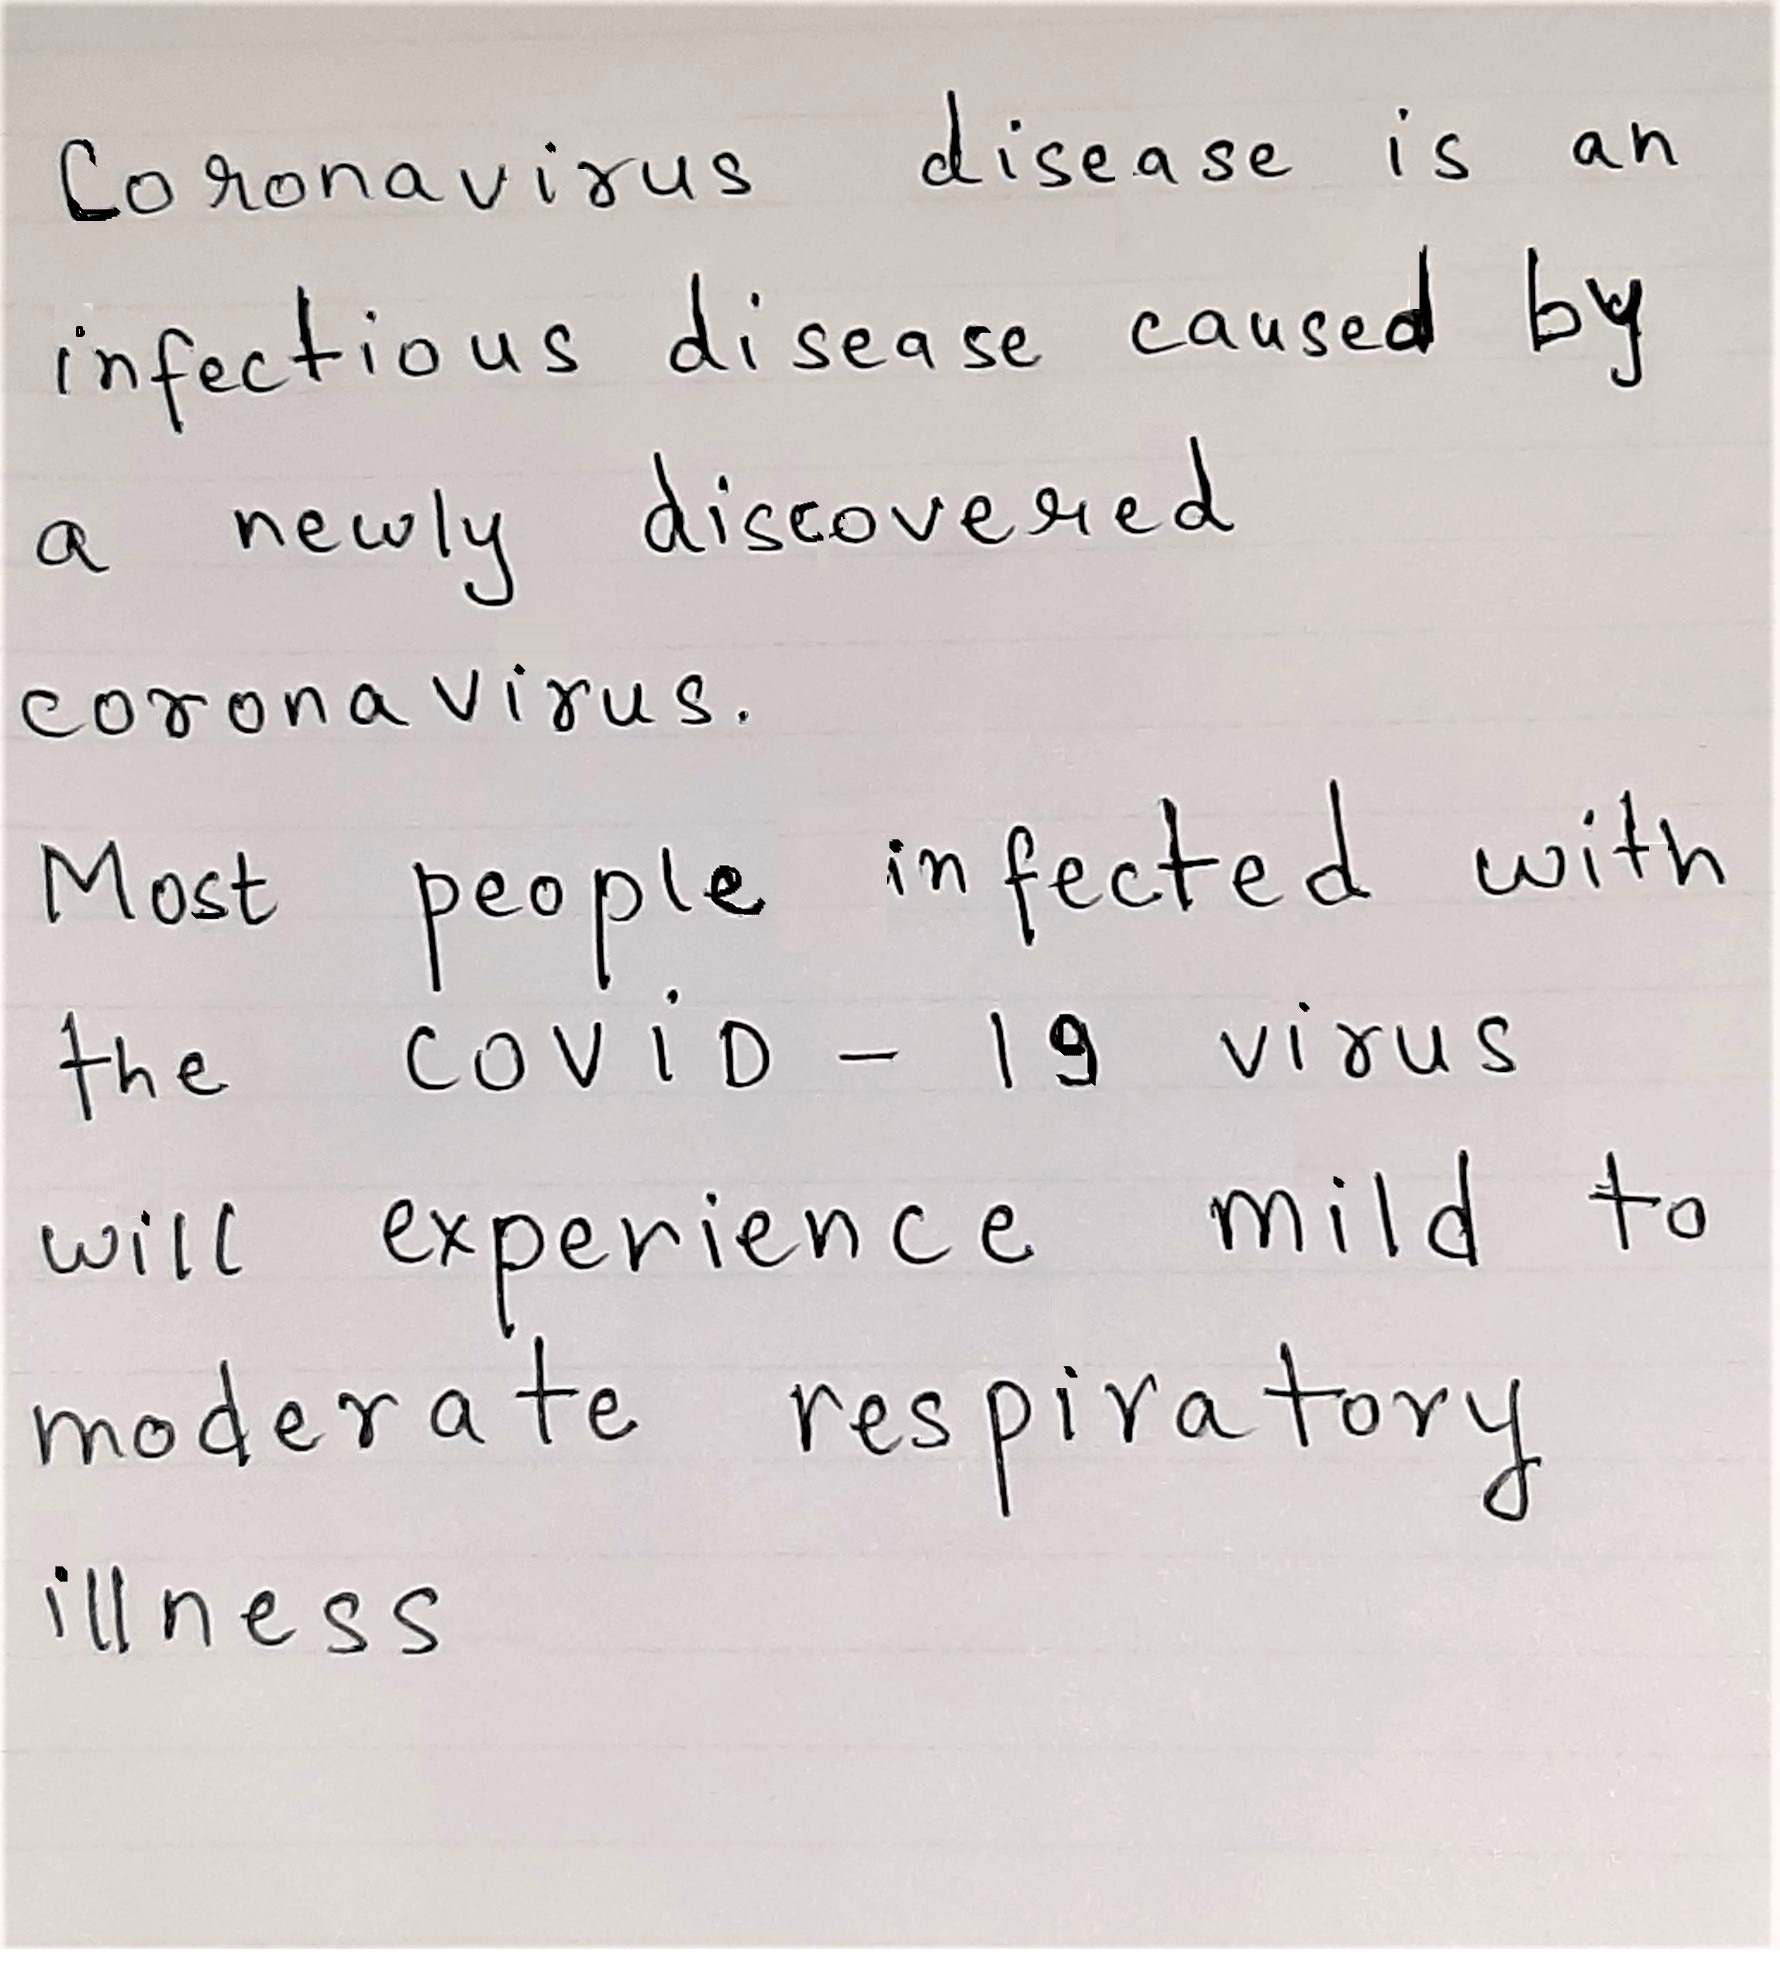 Coronavirus disease is an
infectious disease caused by
a newly discovered
coronavirus.
Most people infected with
the COViD - 19 virus
will experience mild to
moderate respiratory
illness